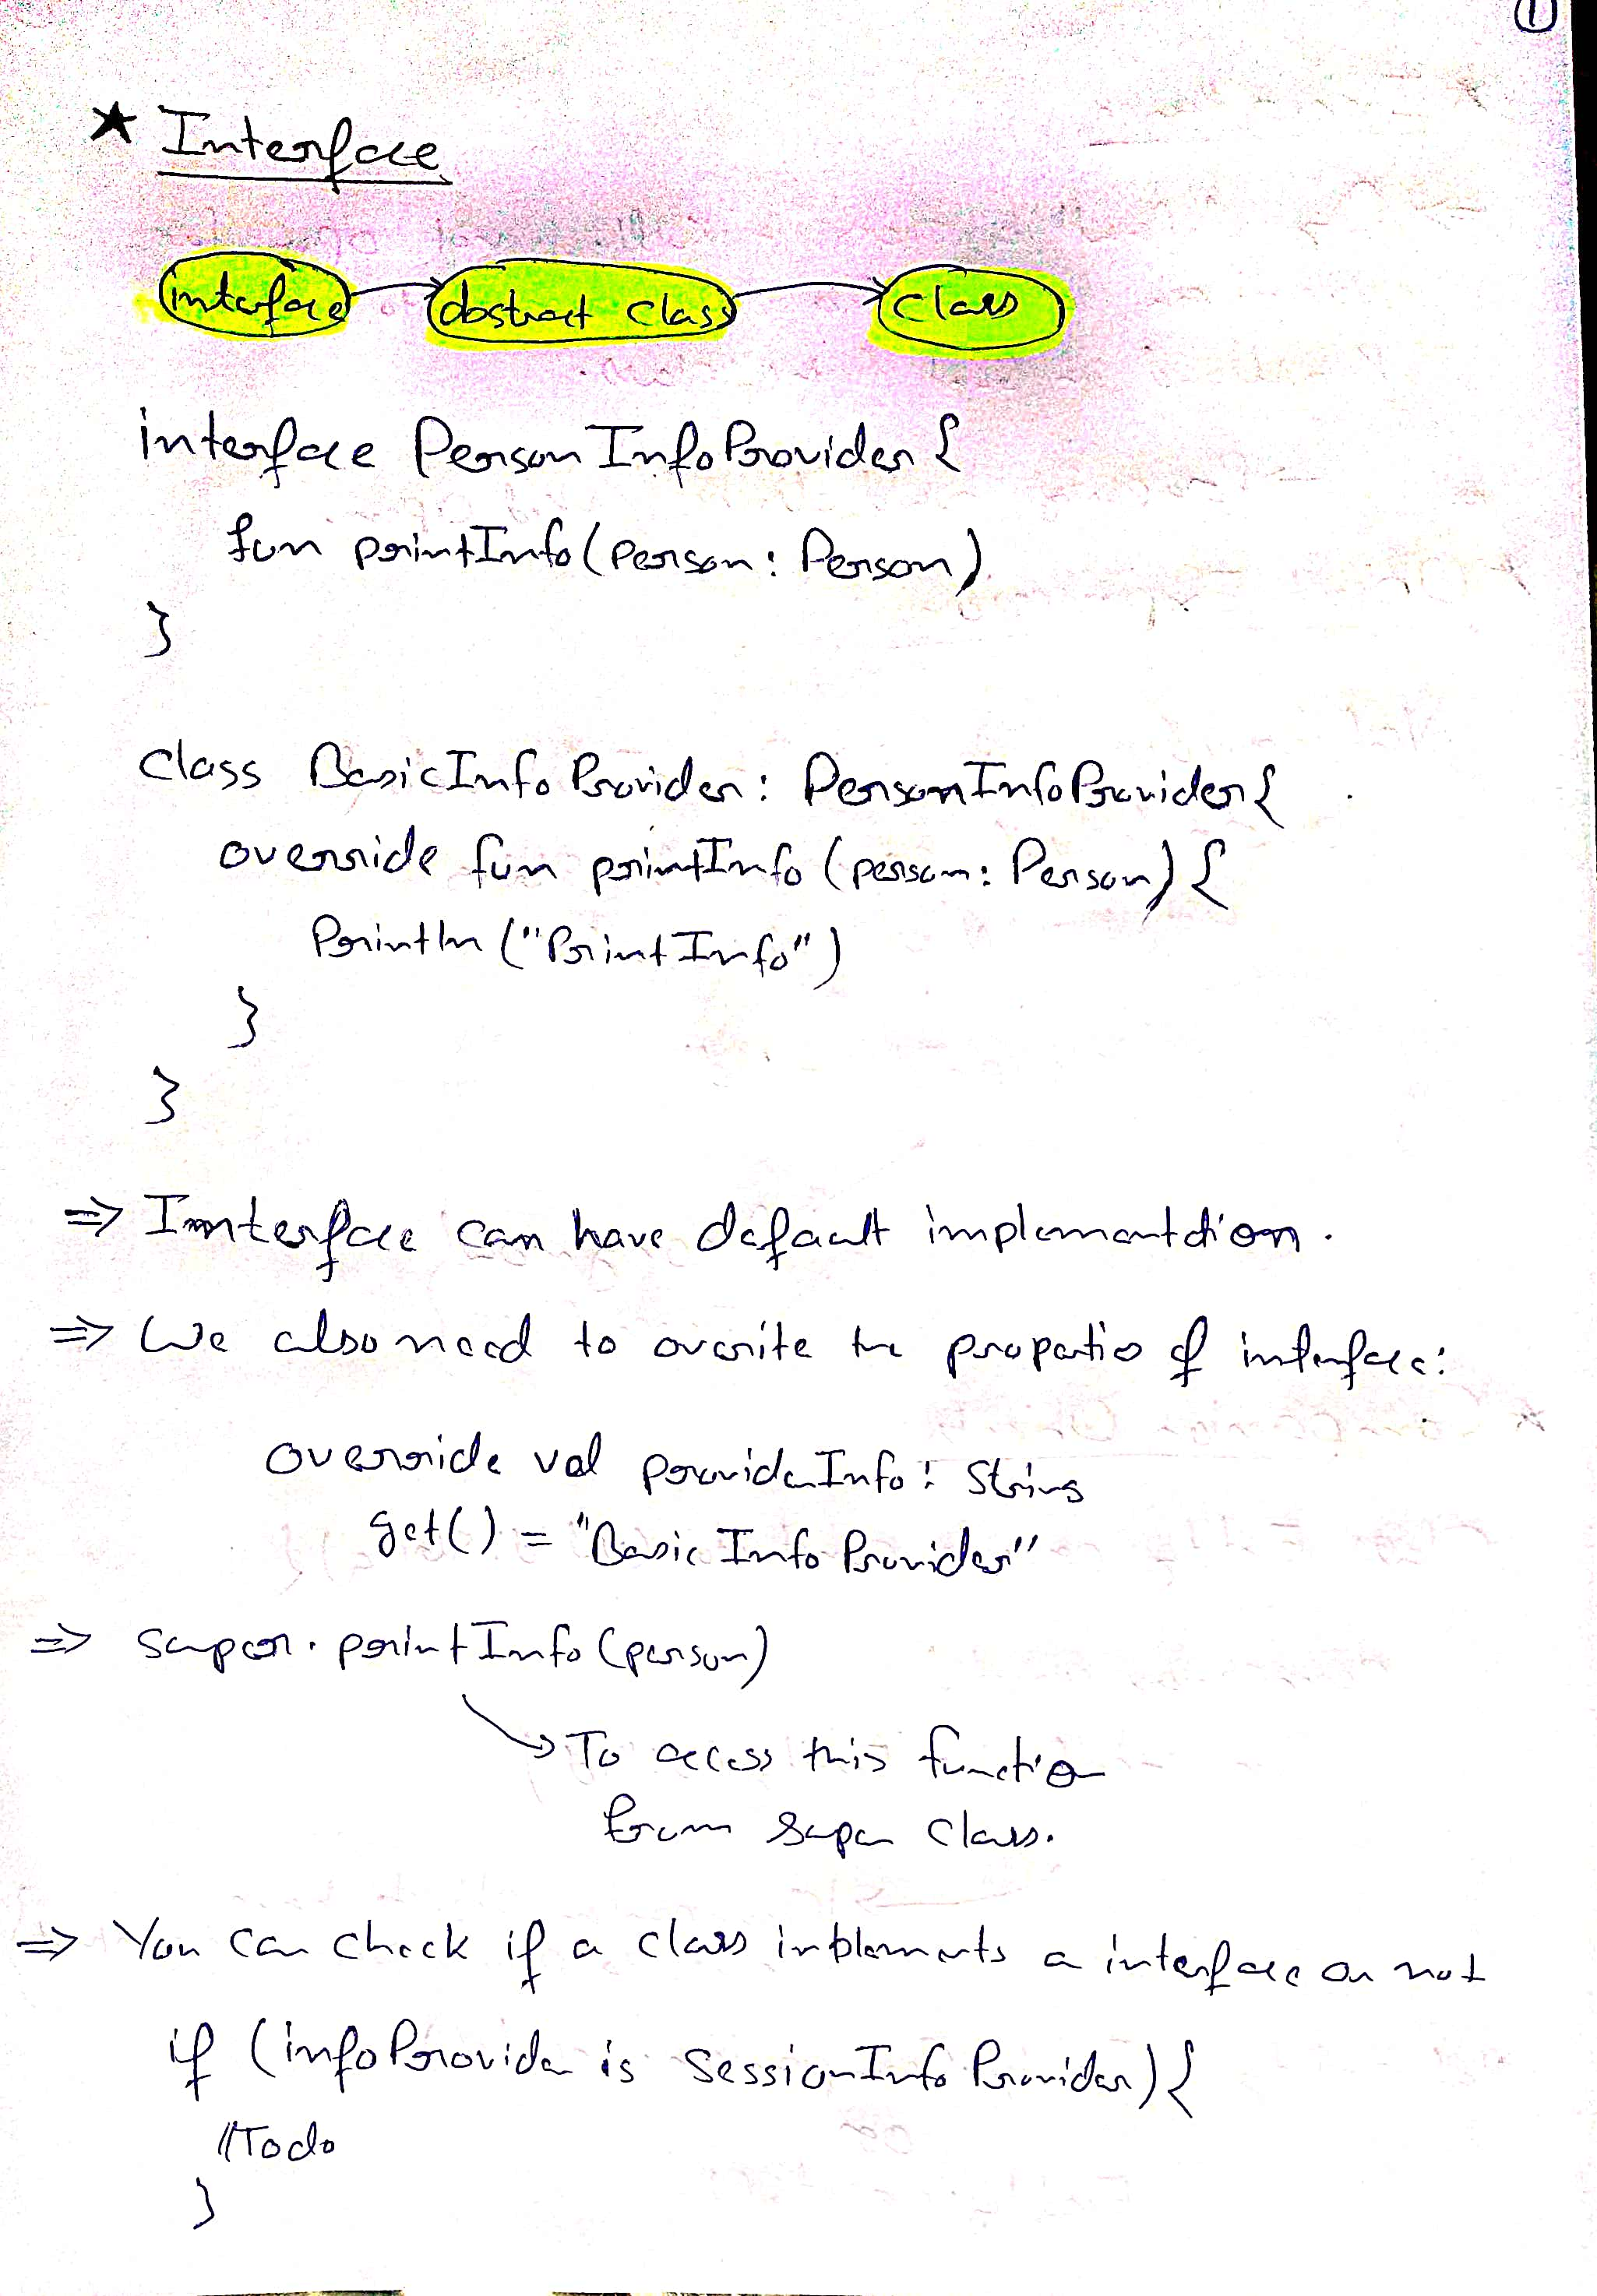 ①
★ Interface
interface → abstract class → class
interface PersonInfoProvider {
fun printInfo(person: Person)
}
Class BasicInfoProvider: PersonInfoProvider {
override fun printInfo (person: Person) {
Println ("Print Info")
}
}
⇒ Interface can have default implementation.
⇒ We also need to overrite the properties of interface:
override val providerInfo: String
get() = "Basic Info Provider"
⇒ super.printInfo(person)
→ To access this function
from super class.
⇒ You can check if a class implements a interface or not
if (infoProvider is SessionInfoProvider) {
//Todo
}